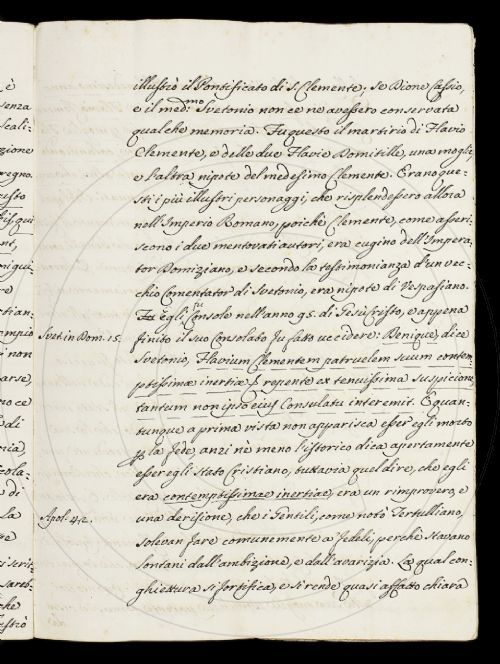 illustrò il Pontificato di S. Clemente; se Dione Cassio,
e il med:mo Svetonio non ce ne avessero conservata
qualche memoria. Fu questo il martirio di Flavio
Clemente, e delle due Flavie Domitille, una moglie,
e l'altra nipote del medesimo Clemente. Erano que-
sti i più illustri personaggi, che risplendessero allora
nell'Imperio Romano, poichè Clemente, come asseri-
scono i due mentovati autori, era cugino dell'Impera-
tor Domiziano, e secondo la testimonianza d'un vec-
chio Comentator di Svetonio, era nipote di Vespasiano.
Fu egli Console nell'anno 95. di Gesù Cristo, e appena
Svet. in Dom. 15. finito il suo Consolato fu fatto uccidere: Denique, dice
Svetonio, Flavium Clementem patruelem suum contem-
ptissimæ inertiæ repente ex tenuissima suspicione
tantum non ipso ejus Consulatu interemit. E quan-
tunque a prima vista non apparisca esser egli morto
p la fede, anzi nè meno l'istorico dica apertamente
esser egli stato Cristiano, tuttavia quel dire, che egli
era contemptissimae inertiae, era un rimprovero, e
Apol. 42. una derisione, che i Gentili, come notò Tertulliano,
solevan fare comunemente a' fedeli, perchè stavano
lontani dall'ambizione, e dall'avarizia. La qual con-
ghiettura si fortifica, e si rende quasi affatto chiara